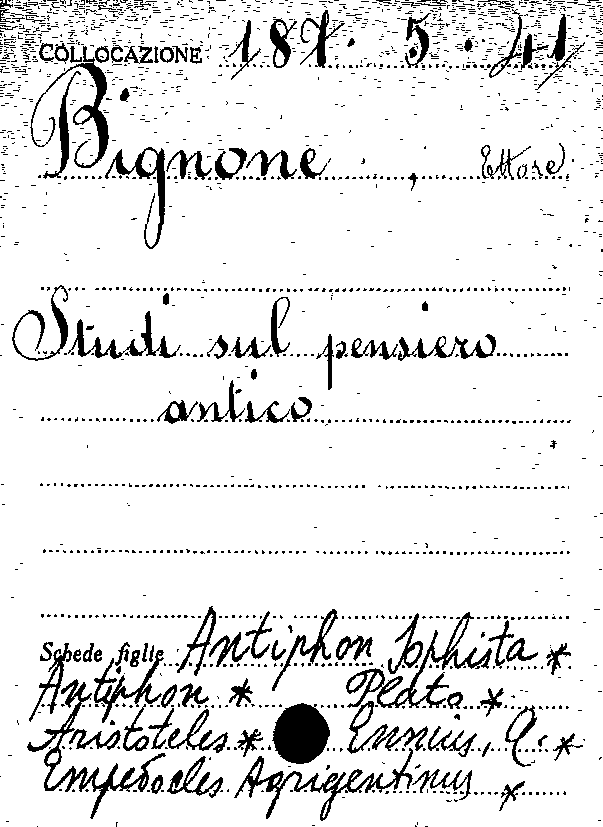 COLLOCAZIONE 187. 5. 41
Bignone, Ettore
Studi sul pensiero
antico
Schede figlie Antiphon Sophista *
Antiphon * Plato *
Aristoteles * Ennius, Q. *
Empedocles Agrigentinus *